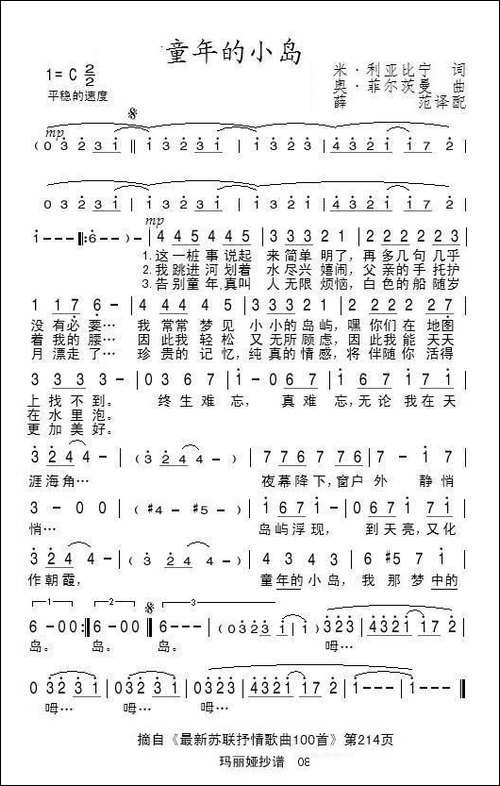 童年的小岛
1= C 2/2
平稳的速度
米·利亚比宁 词
奥·菲尔茨曼 曲
薛 范译配
mp
( 0 3 2 3 1 ‖ 1 3 2 3 1 | 1 3 2 3 | 4 3 2 1 | 1 7 2 |
0 3 2 3 1 | 1 3 2 3 1 | 1 3 2 3 | 4 3 2 1 | 1 7 2 |
mp
1 - - ‖: 6 - - ) | 4 4 5 4 4 5 | 3 3 3 2 1 | 3 3 3 2 1 |
1.这一桩事说起 来简单 明了，再多几句 几乎
2.我跳进河划着 水尽兴 嬉闹，父亲的手 托护
3.告别童年,真叫 人无限 烦恼，白色的船 随岁
1 1 7 6 - | 4 4 5 4 4 5 | 3 3 3 2 1 | 2 2 2 2 1 |
没有必要… 我常常梦见 小小的岛屿，嘿你们在 地图
着我的腰… 因此我轻松 又无所顾虑，因此我能 天天
月漂走了… 珍贵的记忆，纯真的情感，将伴随你 活得
3 3 3 3 - | 0 3 6 7 | 1 - 0 6 7 | 1 1 6 7 |
上找不到。 终生难 忘， 真难 忘,无论我在天
在水里泡。
更加美好。
3 2 4 4 - | ( 3 2 4 4 - ) | 7 7 6 7 7 6 | 7 - 1 7 |
涯海角… 夜幕降下,窗户 外 静悄
6 - - - | ( #4 - #5 - ) | 1 6 7 1 | 0 1 6 7 |
悄… 岛屿浮现， 到天亮,又化
3 2 4 4 - | ( 3 2 4 4 - ) | 3 4 3 4 3 | 6 #5 7 1 |
作朝霞， 童年的小岛，我 那梦中的
1 2 3
6 - 0 0 :‖ 6 - 0 0 ‖ 6 - - - | ( 0 3 2 3 1 | 1 ) | 3 2 3 | 4 3 2 1 | 1 7 2 |
岛。 岛。 岛。 呣…
0 3 2 3 1 | 1 3 2 3 1 | 1 3 2 3 | 4 3 2 1 | 1 7 2 | 1 - - - | 1 - - - ‖
呣… 呣… 呣…
摘自《最新苏联抒情歌曲100首》第214页
玛丽娅抄谱 08